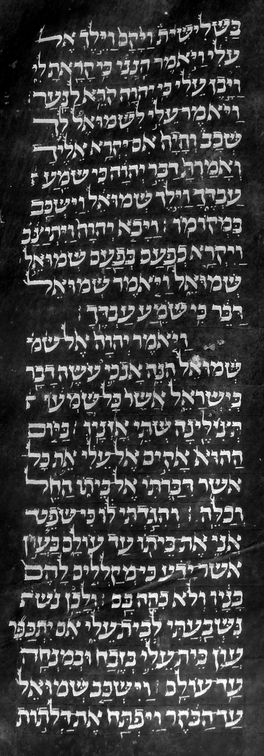 בשלישית ויקם וילך אל
עלי ויאמר הנני כי קראת לי
ויבן עלי כי יהוה קרא לנער
ויאמר עלי לשמואל לך
שכב והיה אם יקרא אליך
ואמרת דבר יהוה כי שמע
עבדך וילך שמואל וישכב
במקומו : ויבא יהוה ויתיצב
ויקרא כפעם בפעם שמואל
שמואל ויאמר שמואל
דבר כי שמע עבדך :
ויאמר יהוה אל שמ
שמואל הנה אנכי עשה דבר
בישראל אשר כל שמעו
תצלינה שתי אזניו : ביום
ההוא אקים אל עלי את כל
אשר דברתי אל ביתו החל
וכלה : והגדתי לו כי שפט
אני את ביתו עד עולם בעון
אשר ידע כי מקללים להם
בניו ולא כהה בם : ולכן נשב
נשבעתי לבית עלי אם יתכפר
עון בית עלי בזבח ובמנחה
עד עולם : וישכב שמואל
עד הבקר ויפתח את דלתות